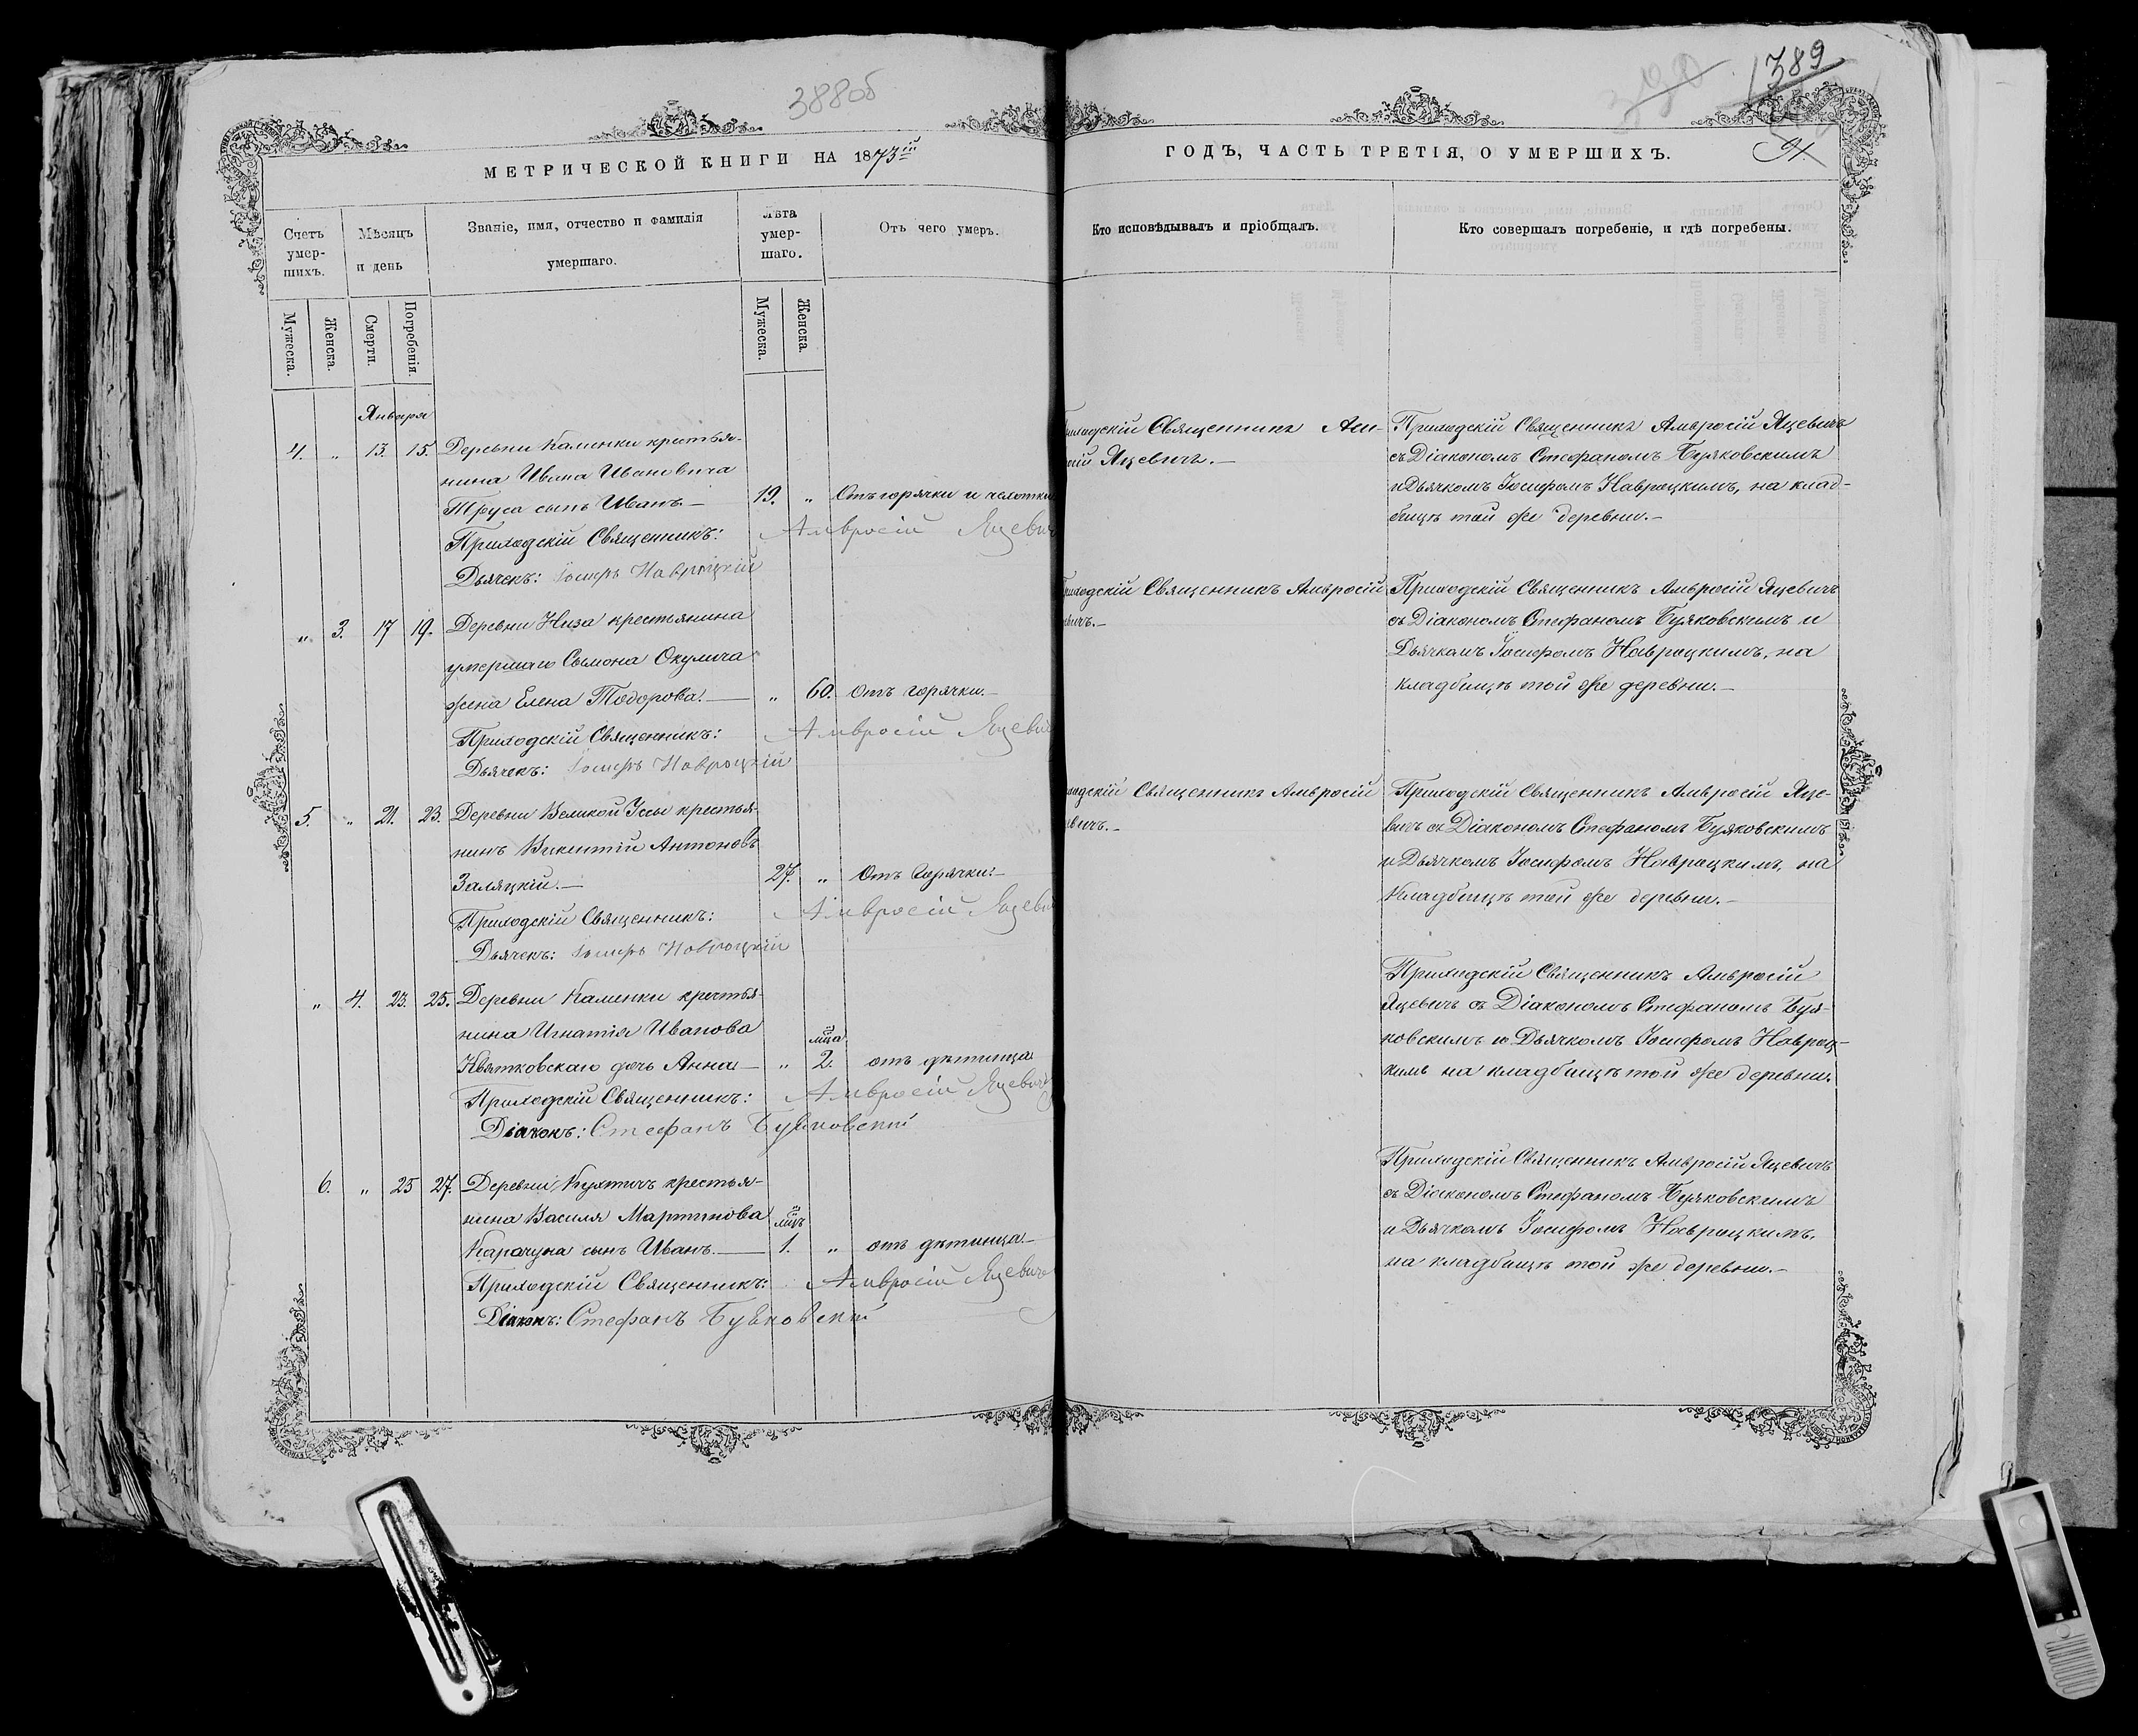 388об
389
91.
МЕТРИЧЕСКОЙ КНИГИ НА 1873й
ГОДЪ, ЧАСТЬ ТРЕТІЯ, О УМЕРШИХЪ.
Счетъ умер-шихъ.
Мѣсяцъ и день
Званіе, имя, отчество и фамилія
умершаго.
Лѣта умер-шаго.
Отъ чего умеръ.
Кто исповѣдывалъ и пріобщалъ.
Кто совершалъ погребеніе, и гдѣ погребены.
Мужеска.
Женска.
Смерти.
Погребенія.
Мужеска.
Женска.
Января
4. „ 13. 15. Деревни Каменки крестья-
нина Ивана Ивановича
Труса сынъ Иванъ.— 19. „ Отъ горячки и чахотки
Приходскій Священникъ: Амвросій Яцевич
Дьячекъ: Іосифъ Навроцкій
Священникъ Ам-
Яцевичъ.—
Приходскій Священникъ Амвросій Яцевичъ
съ Діакономъ Стефаномъ Буяковскимъ
и Дьячкомъ Іосифомъ Навроцкимъ, на клад-
бищѣ той же деревни.—
„ 3. 17 19. Деревни Низа крестьянина
умершаго Сымона Окулича
жена Елена Тодорова.— „ 60. Отъ горячки.—
Приходскій Священникъ: Амвросій Яцевич
Дьячекъ: Іосифъ Навроцкій
Священникъ Амвросій
Приходскій Священникъ Амвросій Яцевичъ
съ Діакономъ Стефаномъ Буяковскимъ и
Дьячкомъ Іосифомъ Навроцкимъ, на
кладбищѣ той же деревни.—
5. „ 21. 23. Деревни Великой Іссы крестья-
нинъ Викентій Антоновъ
Заляцкій.— 27. „ Отъ Горячки.—
Приходскій Священникъ: Амвросій Яцевич
Дьячекъ: Іосифъ Навроцкій
Священникъ Амвросій
Приходскій Священникъ Амвросій Яце-
вичъ съ Діакономъ Стефаномъ Буяковскимъ
и Дьячкомъ Іосифомъ Навроцкимъ, на
Кладбищѣ той же деревни.—
„ 4. 23. 25. Деревни Каменки крестья-
нина Игнатія Иванова
мца
Квятковскаго дочь Анна— „ 2. отъ дѣтинца
Приходскій Священникъ: Амвросій Яцевичъ
Діаконъ: Стефанъ Буяковскій
Приходскій Священникъ Амвросій
Яцевичъ съ Діакономъ Стефаномъ Буя-
ковскимъ и Дьячкомъ Іосифомъ Навроц-
кимъ на кладбищѣ той же деревни.
6. „ 25 27. Деревни Кухтичъ крестья-
нина Василя Мартинова мцъ
Карачуна сынъ Иванъ.— 1. „ отъ дѣтинца—
Приходскій Священникъ: Амвросій Яцевичъ
Діаконъ: Стефанъ Буяковскій
Приходскій Священникъ Амвросій Яцевичъ
съ Діакономъ Стефаномъ Буяковскимъ
и Дьячкомъ Іосифомъ Навроцкимъ,
на кладбищѣ той же деревни.—